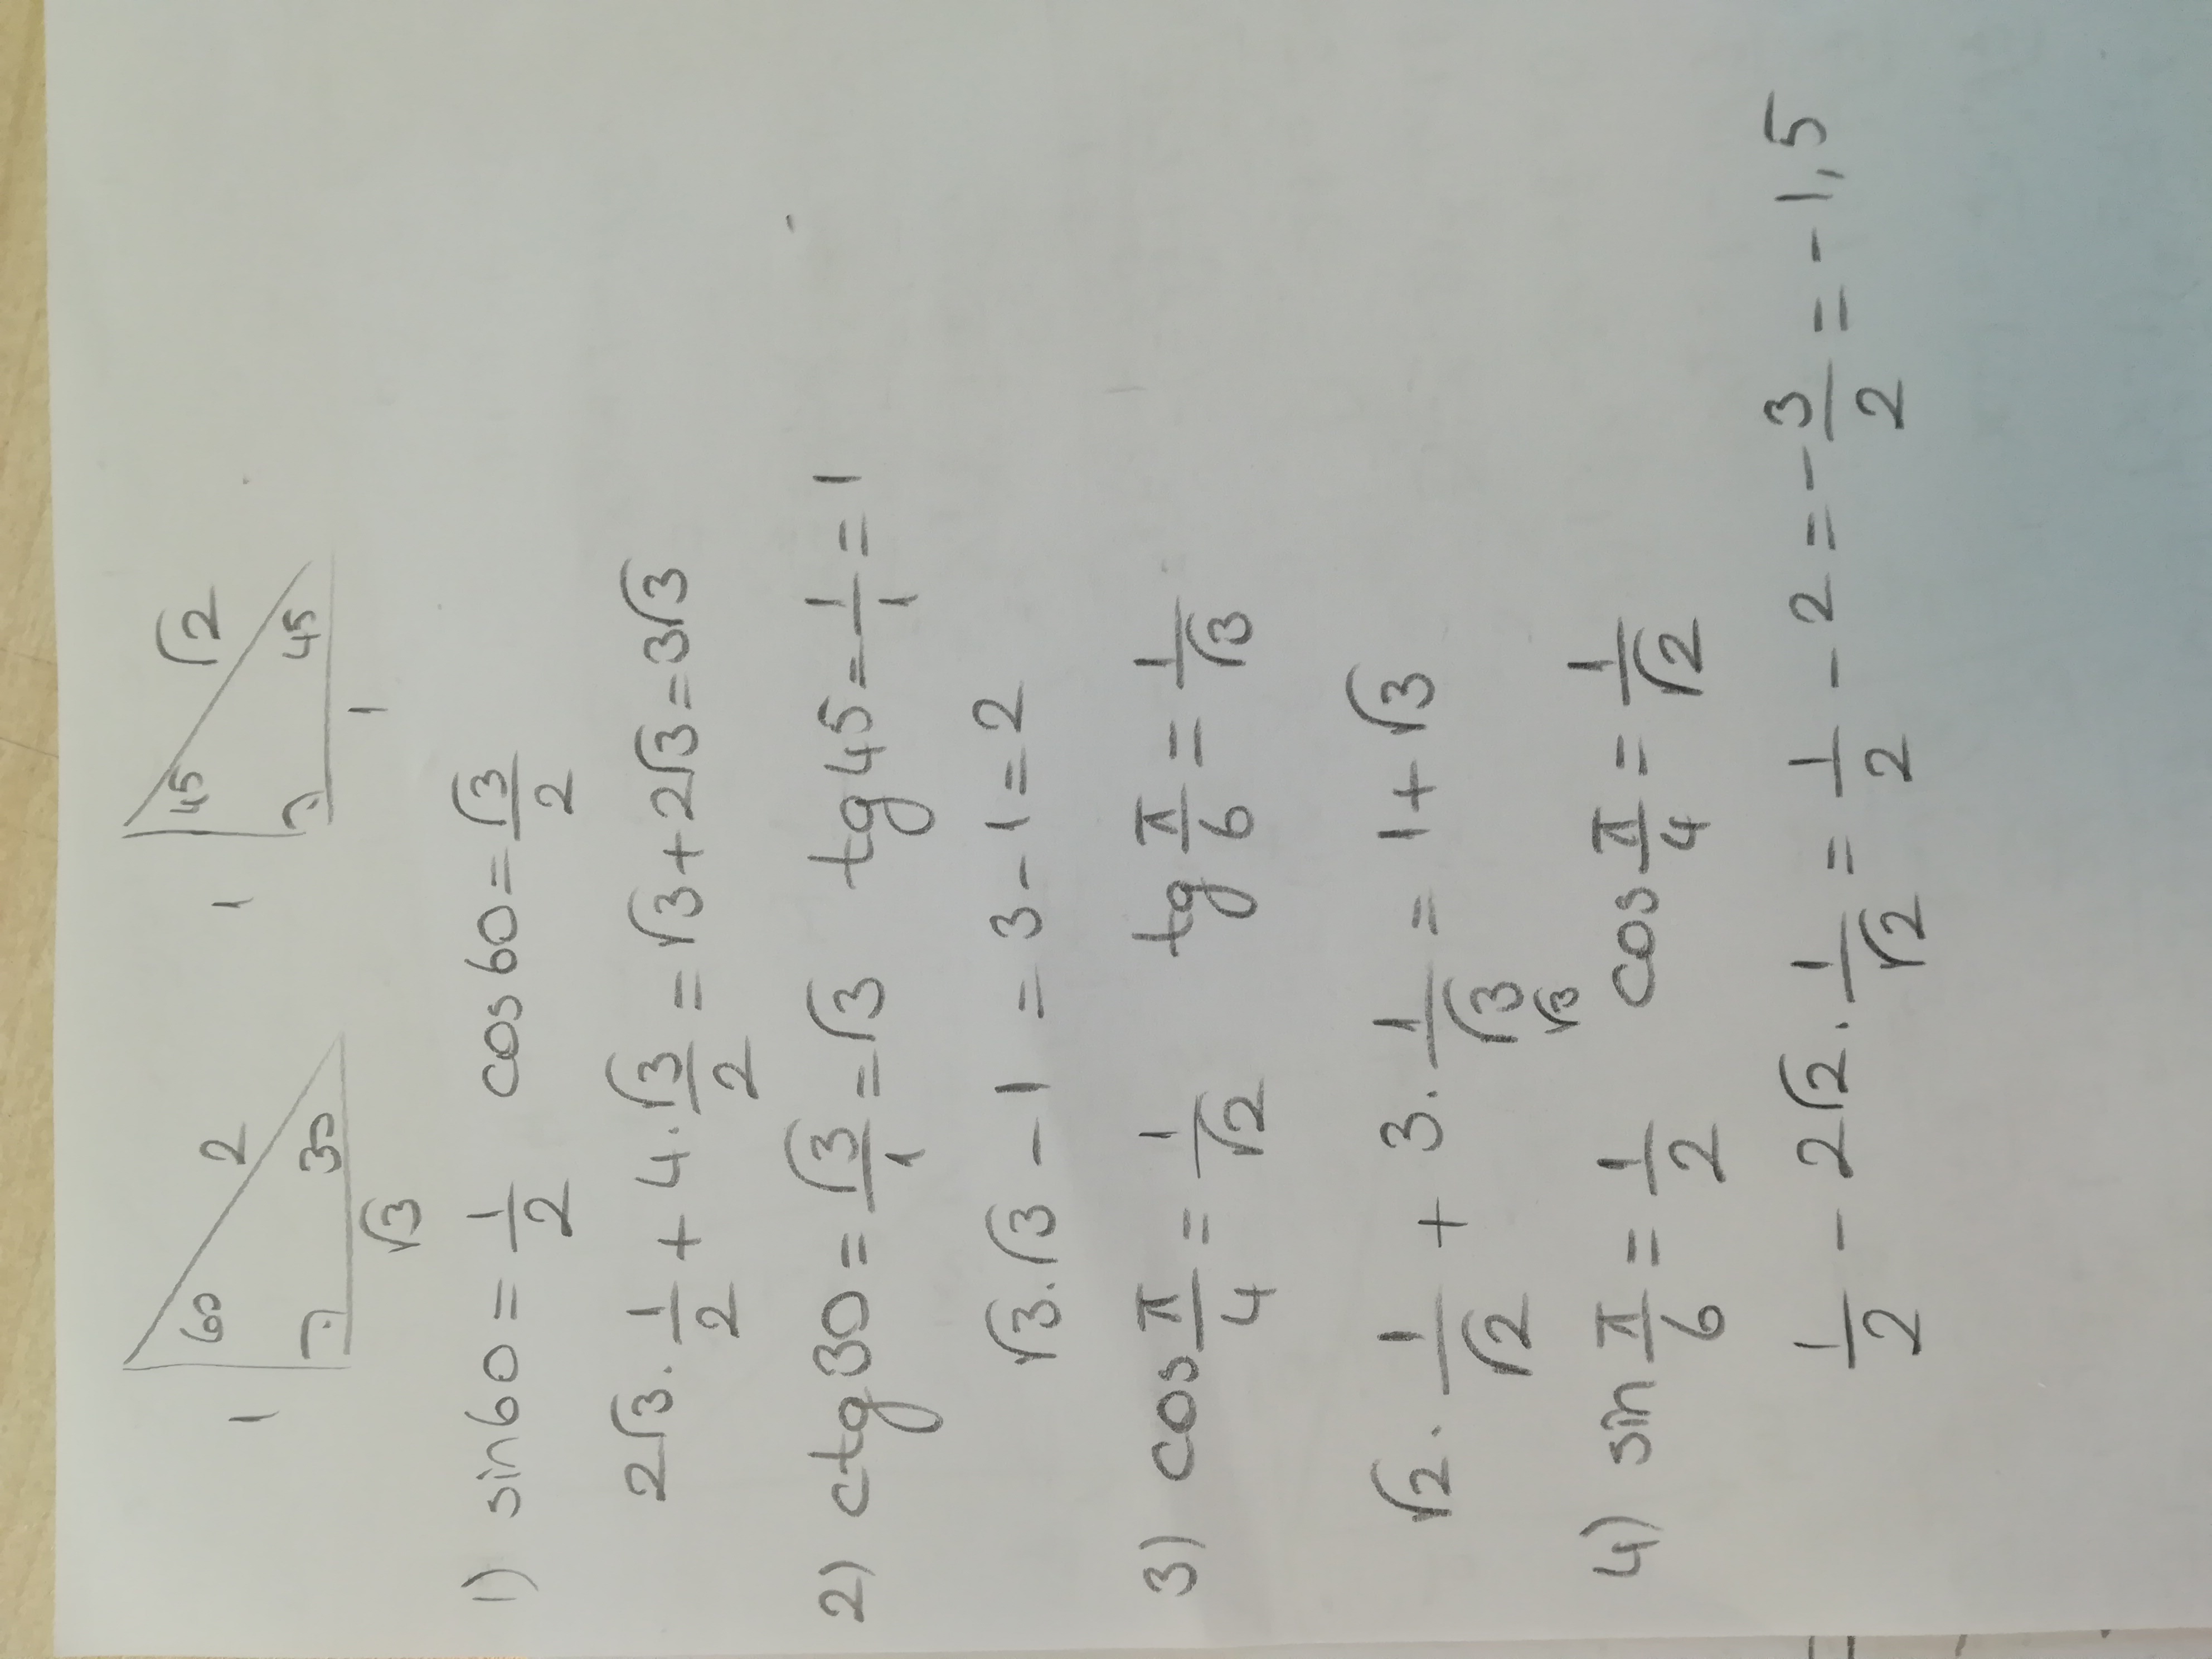 1 60 2 30 √3 1 45 √2 45 1
1) sin60 = 1/2 cos60 = √3/2
2√3 · 1/2 + 4 · √3/2 = √3 + 2√3 = 3√3
2) ctg30 = √3/1 = √3 tg45 = 1/1 = 1
√3 · √3 - 1 = 3 - 1 = 2
3) cos π/4 = 1/√2 tg π/6 = 1/√3
√2 · 1/√2 + 3 · 1/√3 = 1 + √3
√3
4) sin π/6 = 1/2 cos π/4 = 1/√2
1/2 - 2√2 · 1/√2 = 1/2 - 2 = - 3/2 = - 1,5